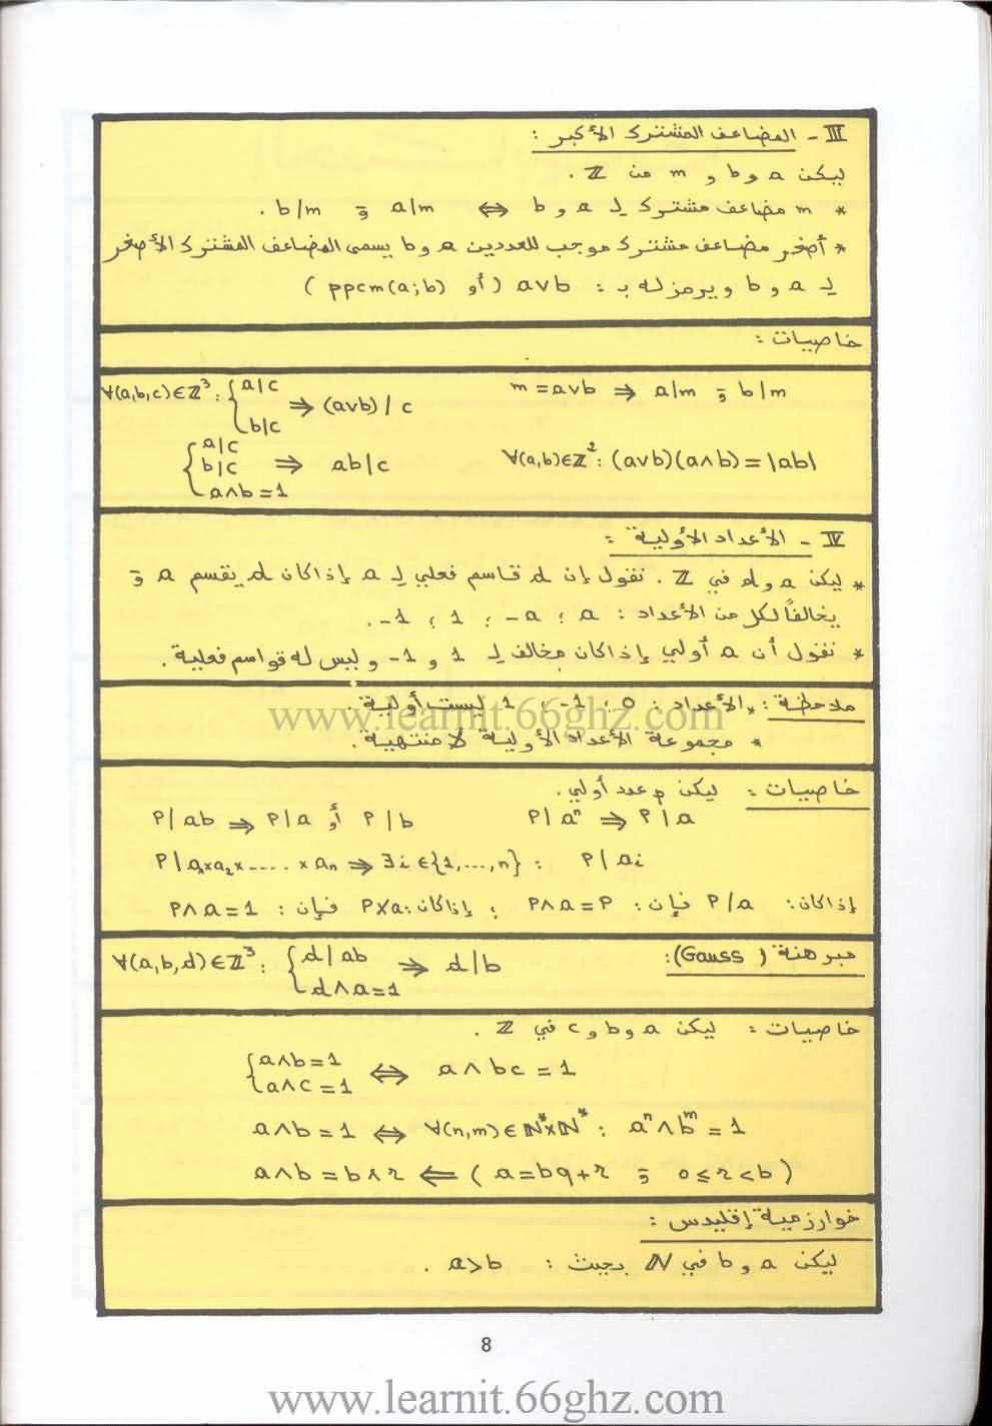 III - المضاعف المشترك الأكبر :
ليكن a و b و m من ℤ .
* m مضاعف مشترك لـ a و b ⇔ a/m و b/m .
* أصغر مضاعف مشترك موجب للعددين a و b يسمى المضاعف المشترك الأصغر
لـ a و b ويرمز له بـ : a∨b (أو ppcm(a;b) )
خاصيات :
m = a∨b ⇒ a/m و b/m
∀(a,b,c)∈ℤ³ : { a|c ; b|c ⇒ (a∨b) / c
∀(a,b)∈ℤ² : (a∨b)(a∧b) = |ab|
{ a|c ; b|c ; a∧b = 1 ⇒ ab|c
IV - الأعداد الأولية :
* ليكن a و d في ℤ . نقول إن d قاسم فعلي لـ a إذا كان d يقسم a و
يخالفاً لكل من الأعداد : a ؛ -a ؛ 1 ؛ -1 .
* نقول أن a أولي إذا كان مخالف لـ 1 و -1 وليس له قواسم فعلية .
ملاحظة : * الأعداد : 0 ؛ -1 ؛ 1 ليست أولية .
* مجموعة الأعداد الأولية لا منتهية .
خاصيات : ليكن p عدد أولي .
P/aⁿ ⇒ P/a
P/ab ⇒ P/a أو P/b
P/a₁×a₂×....×aₙ ⇒ ∃i ∈{1,...,n} : P/aᵢ
إذا كان : P/a فإن : P∧a = P ؛ إذا كان : P∤a فإن : P∧a = 1
مبرهنة ( Gauss ) :
∀(a,b,d)∈ℤ³ : { d/ab ; d∧a=1 ⇒ d/b
خاصيات : ليكن a و b و c في ℤ .
{ a∧b = 1 ; a∧c = 1 ⇔ a∧bc = 1
a∧b = 1 ⇔ ∀(n,m)∈ℕ*×ℕ* : aⁿ∧bᵐ = 1
a∧b = b∧r ⇐ ( a=bq+r و 0≤r<b )
خوارزمية إقليدس :
ليكن a و b في ℕ بحيث : a>b .
8
www.learnit.66ghz.com
www.learnit.66ghz.com